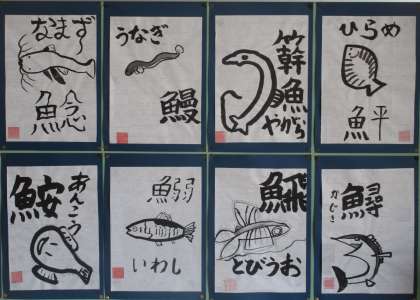 なまず
鯰
うなぎ
鰻
簳魚
やがら
ひらめ
鮃
あんこう
鮟
鰯
いわし
魚飛
とびうお
鱘
かぢき